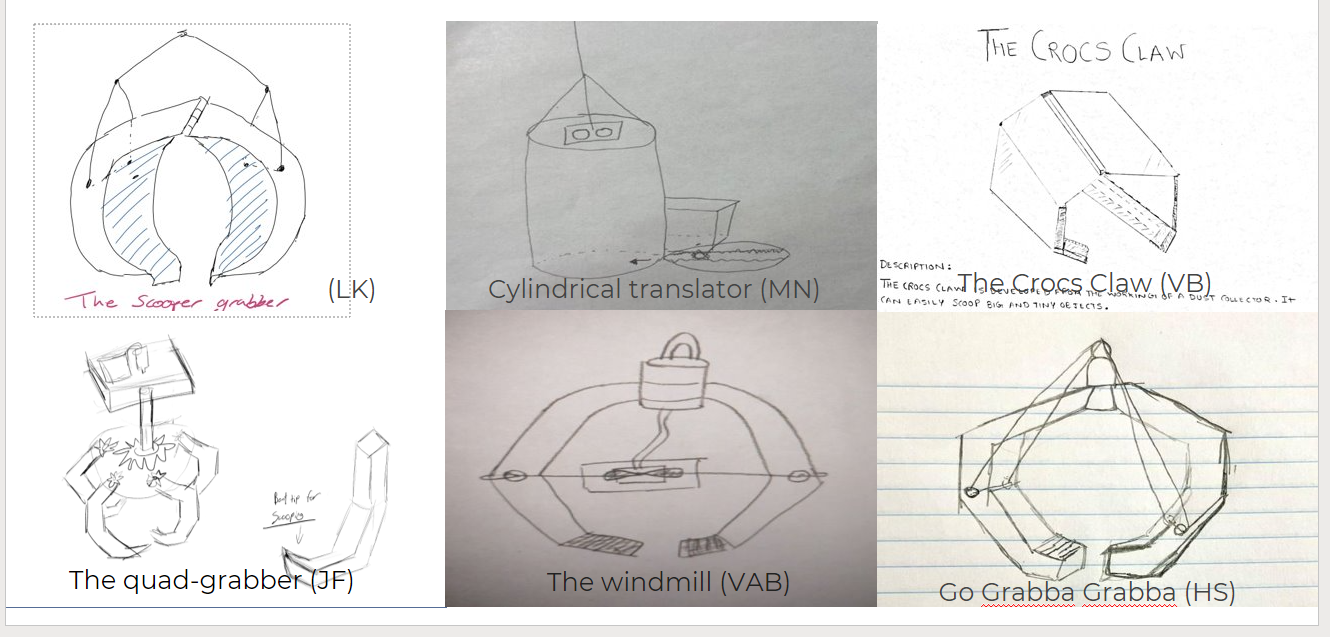 The Scooper grabber
(LK)
Cylindrical translator (MN)
THE CROCS CLAW
DESCRIPTION:
THE CROCS CLAW IS DEVELOPED FROM THE WORKINGS OF A DUST COLLECTOR. IT
CAN EASILY SCOOP BIG AND TINY OBJECTS.
The Crocs Claw (VB)
tip for
Scooping
The quad-grabber (JF)
The windmill (VAB)
Go Grabba Grabba (HS)